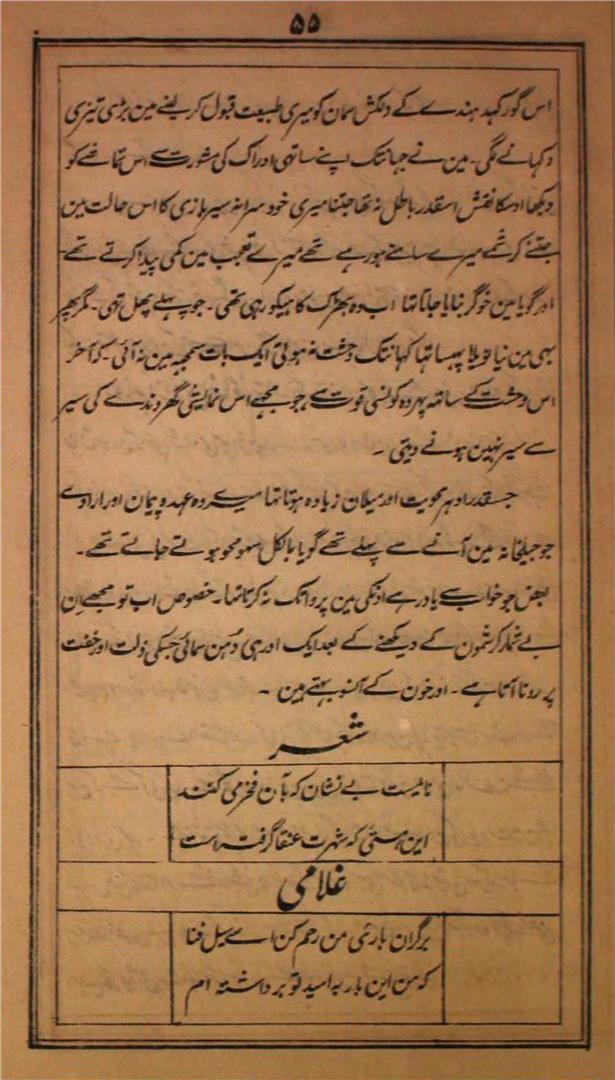 ۵۵
اس گورکہہ ہندے کے دلکش سمان کو میری طبیعت قبول کر لینے مین بڑی تیزی
دکہانے لگی۔ مین نے جہانتک اپنے ساتھی ادراک کی مشورت سے اس تماشے کو
دیکھا اوسکا نقش اسقدر باطل نہ تھا جتنا میری خود سرانہ سیر بازی کا اس حالت مین
جتنے کرشمے میرے سامنے ہو رہے تھے میرے تعجب مین کمی پیدا کرتے تھے
اور گویا مین خوگر بنایا جاتا تہا اب وہ بھڑک کا ہیکو رہی تھی۔ جو پہلے پھل تہی۔ مگر پھر
بہی مین نیا نویلا پہنسا تہا کہانتک وحشت نہ ہوتی ایک بات سمجہہ مین نہ آئی۔ کہ آخر
اس وحشت کے ساتہہ پہر وہ کونسی قوت ہے جو مجھے اس نمایشی گھروندے کی سیر
سے سیر نہین ہونے دیتی۔
جسقدر ادہر محویت اور میلان زیادہ ہوتا تہا میرے وہ عہد و پیمان اور ارادے
جو جیلخانہ مین آنے سے پہلے تھے گویا بالکل سہو محو ہوتے جاتے تھے۔
بعض جو خواب سے یاد رہے اونکی مین پروا تک نہ کرتا تہا۔ خصوص اب تو مجھے اِن
بے شمار کرشمون کے دیکھنے کے بعد ایک اور ہی دُہن سمائی جسکی ذلت اور خفت
پر رونا آتا ہے۔ اور خون کے آنسو بہتے ہین۔
شعر
نامیست بے نشان کہ بآن فخر می کنند
این ہستئ کہ شہرت عنقا گرفتہ است
غلامی
برگران باریٔ من رحم کن اے سیل فنا
کہ من این بار بہ امید تو برداشتہ ام